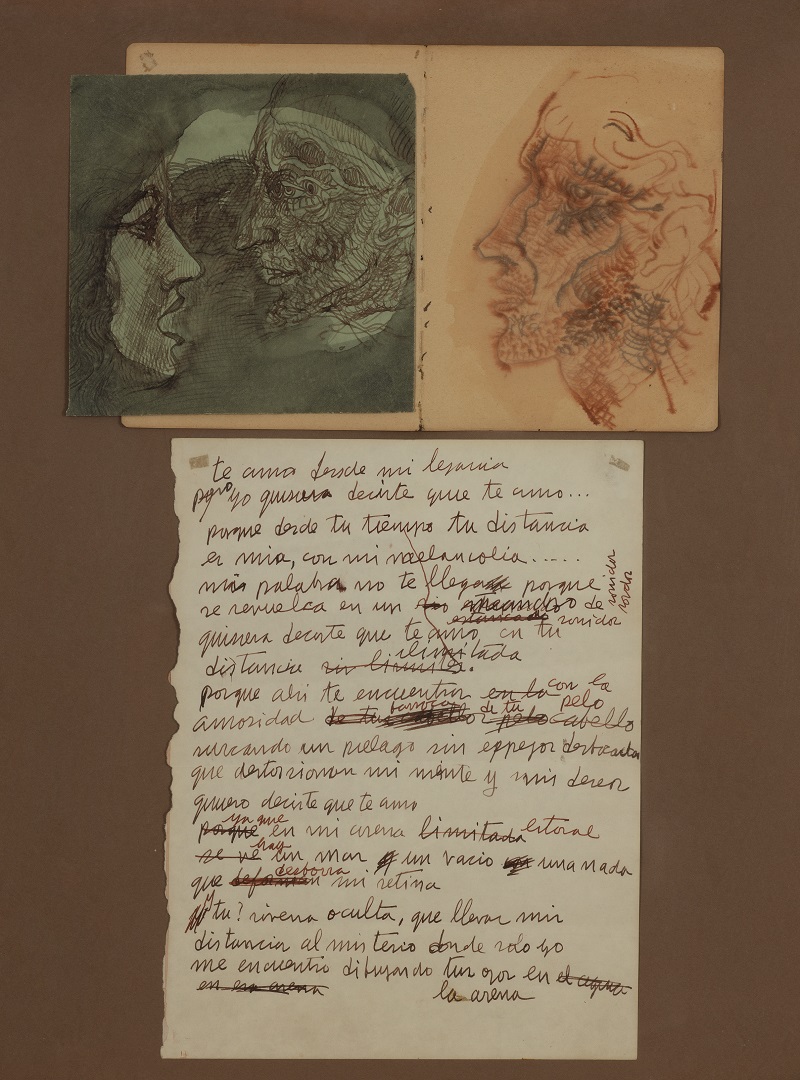 te amo desde mi lejania
pero yo quisiera decirte que te amo...
porque desde tu tiempo tu distancia
es mia, con mi melancolia.....
mis palabra no te llega porque
se revuelca en un rio de sonidos sordos
estancado sonidos
quisiera decirte que te amo, en tu
distancia sin limites. ilimitada
porque ahi te encuentras en la con la
amorosidad de tu cabello pelo cabello
surcando un pielago sin espejos
que destorsionan mi mente y mis deseos
quiero decirte que te amo
porque ya que en mi arena limitada litoral
se ve hay un mar y un vacio una nada
que deforman desborra mi retina
y tu? sirena oculta, que llevas mis
distancias al misterio donde solo yo
me encuentro dibujando tus ojos en el agua
en esa arena la arena